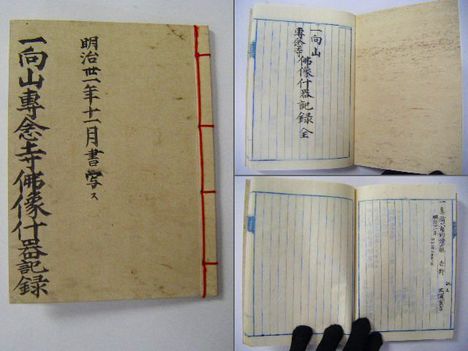 明治丗一年十一月書寫ス
一向山專念寺佛像什器記録
一向山專念寺佛像什器記録 全